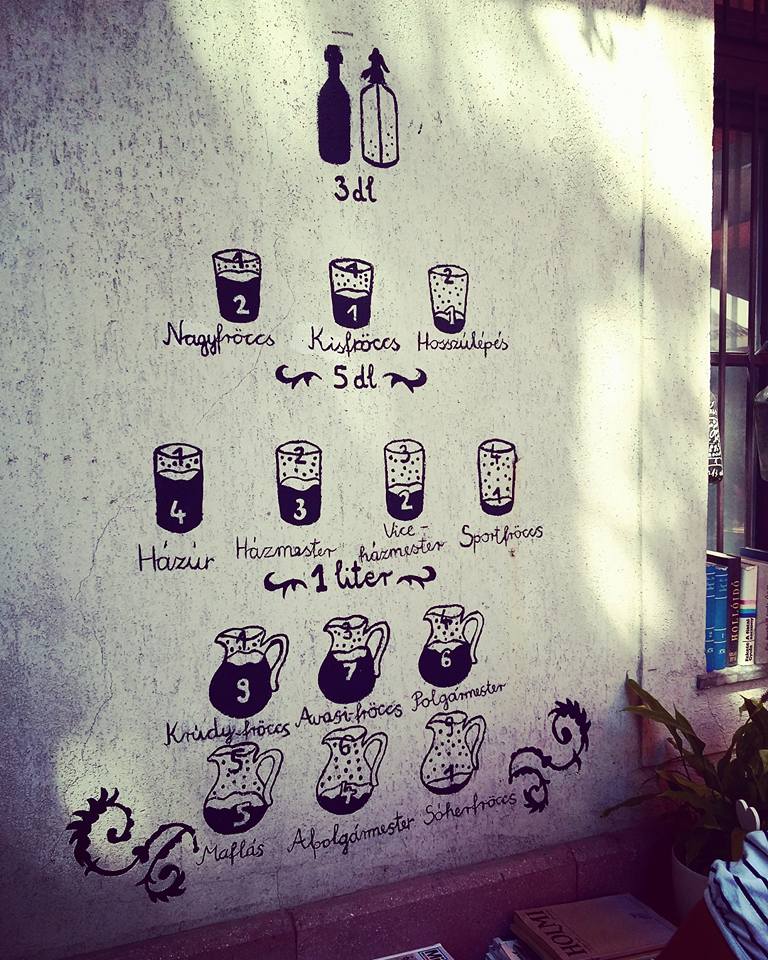 3 dl
1 1 2
2 1 1
Nagyfröccs Kisfröccs Hosszúlépés
5 dl
1 2 3 4
4 3 2 1
Házúr Házmester Vice-
házmester Sportfröccs
1 liter
1 3 4
9 7 6
Krúdy-fröccs Avasi fröccs Polgármester
5 6 9
5 4 1
Maflás Alpolgármester Sóherfröccs
HOLLÓIDŐ
HOLMI